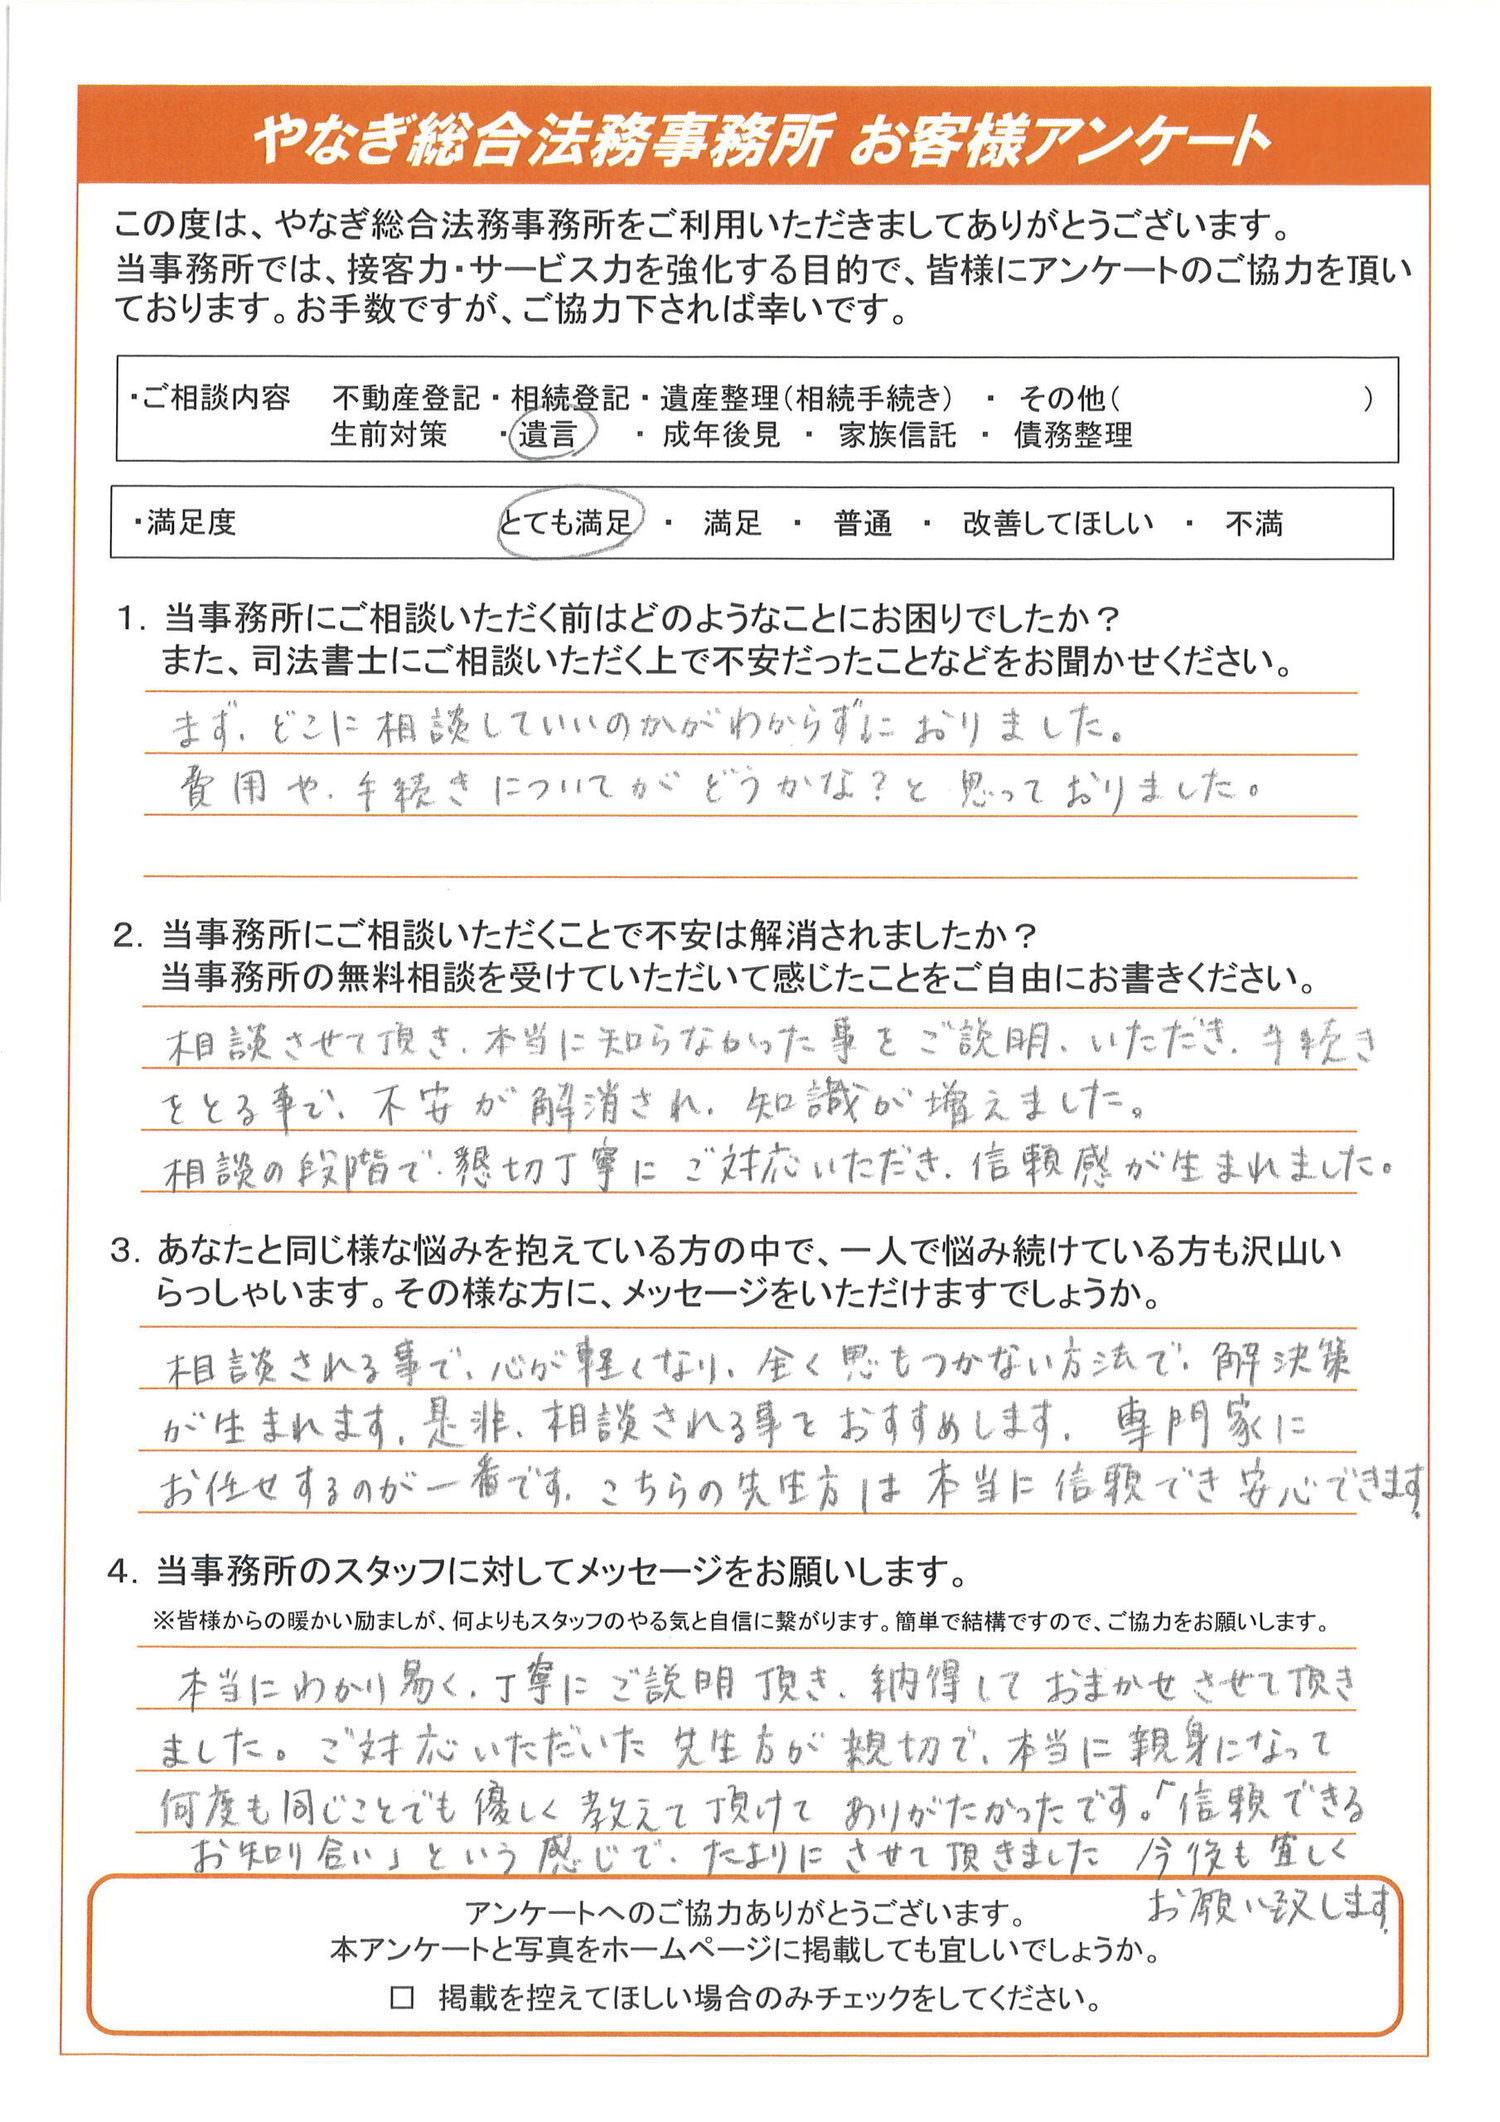 やなぎ総合法務事務所 お客様アンケート
この度は、やなぎ総合法務事務所をご利用いただきましてありがとうございます。
当事務所では、接客力・サービス力を強化する目的で、皆様にアンケートのご協力を頂い
ております。お手数ですが、ご協力下されば幸いです。
・ご相談内容 不動産登記・相続登記・遺産整理(相続手続き) ・ その他( )
生前対策 ・遺言 ・成年後見 ・ 家族信託 ・ 債務整理
・満足度 とても満足 ・ 満足 ・ 普通 ・ 改善してほしい ・ 不満
1. 当事務所にご相談いただく前はどのようなことにお困りでしたか?
また、司法書士にご相談いただく上で不安だったことなどをお聞かせください。
まず、どこに相談していいのかがわからずにおりました。
費用や、手続きについてがどうかな?と思っておりました。
2. 当事務所にご相談いただくことで不安は解消されましたか?
当事務所の無料相談を受けていただいて感じたことをご自由にお書きください。
相談させて頂き、本当に知らなかった事をご説明、いただき、手続き
をとる事で、不安が解消され、知識が増えました。
相談の段階で、懇切丁寧にご対応いただき、信頼感が生まれました。
3. あなたと同じ様な悩みを抱えている方の中で、一人で悩み続けている方も沢山い
らっしゃいます。その様な方に、メッセージをいただけますでしょうか。
相談される事で、心が軽くなり、全く思もつかない方法で、解決策
が生まれます。是非、相談される事をおすすめします。専門家に
お任せするのが一番です。こちらの先生方は本当に信頼でき安心できます。
4. 当事務所のスタッフに対してメッセージをお願いします。
※皆様からの暖かい励ましが、何よりもスタッフのやる気と自信に繋がります。簡単で結構ですので、ご協力をお願いします。
本当にわかり易く、丁寧にご説明頂き、納得しておまかせさせて頂き
ました。ご対応いただいた先生方が親切で、本当に親身になって
何度も同じことでも優しく教えて頂けてありがたかったです。「信頼できる
お知り合い」という感じで、たよりにさせて頂きました 今後も宜しく
お願い致します。
アンケートへのご協力ありがとうございます。
本アンケートと写真をホームページに掲載しても宜しいでしょうか。
□ 掲載を控えてほしい場合のみチェックをしてください。